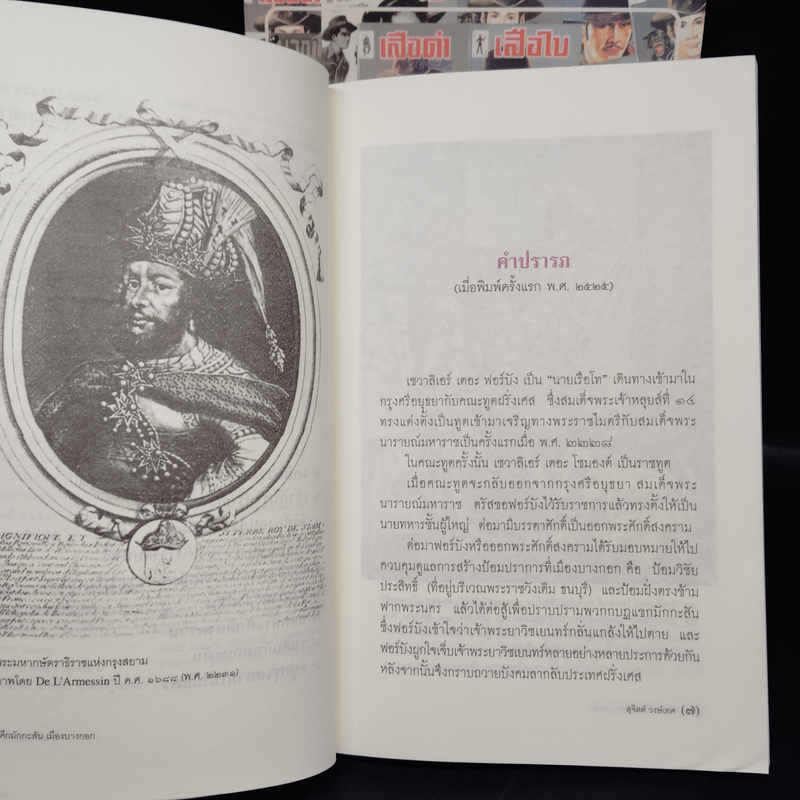 เสือดำ
เสือใบ
ST PERRE, ROY DE SIAM
ระมหากษัตราธิราชแห่งกรุงสยาม
าพโดย De L'Armessin ปี ค.ศ. ๑๖๘๘ (พ.ศ. ๒๒๓๑)
ศึกมักกะสัน เมืองบางกอก
คำปรารภ
(เมื่อพิมพ์ครั้งแรก พ.ศ. ๒๕๒๕)
เชวาลิเอร์ เดอะ ฟอร์บัง เป็น “นายเรือโท” เดินทางเข้ามาใน
กรุงศรีอยุธยากับคณะทูตฝรั่งเศส ซึ่งสมเด็จพระเจ้าหลุยส์ที่ ๑๔
ทรงแต่งตั้งเป็นทูตเข้ามาเจริญทางพระราชไมตรีกับสมเด็จพระ
นารายณ์มหาราชเป็นครั้งแรกเมื่อ พ.ศ. ๒๒๒๘
ในคณะทูตครั้งนั้น เชวาลิเอร์ เดอะ โชมองต์ เป็นราชทูต
เมื่อคณะทูตจะกลับออกจากกรุงศรีอยุธยา สมเด็จพระ
นารายณ์มหาราช ตรัสขอฟอร์บังไว้รับราชการแล้วทรงตั้งให้เป็น
นายทหารชั้นผู้ใหญ่ ต่อมามีบรรดาศักดิ์เป็นออกพระศักดิ์สงคราม
ต่อมาฟอร์บังหรือออกพระศักดิ์สงครามได้รับมอบหมายให้ไป
ควบคุมดูแลการสร้างป้อมปราการที่เมืองบางกอก คือ ป้อมวิชัย
ประสิทธิ์ (ที่อยู่บริเวณพระราชวังเดิม ธนบุรี) และป้อมฝั่งตรงข้าม
ฟากพระนคร แล้วได้ต่อสู้เพื่อปราบปรามพวกกบฏแขกมักกะสัน
ซึ่งฟอร์บังเข้าใจว่าเจ้าพระยาวิชเยนทร์กลั่นแกล้งให้ไปตาย และ
ฟอร์บังผูกใจเจ็บเจ้าพระยาวิชเยนทร์หลายอย่างหลายประการด้วยกัน
หลังจากนั้นจึงกราบถวายบังคมลากลับประเทศฝรั่งเศส
สุจิตต์ วงษ์เทศ (๗)